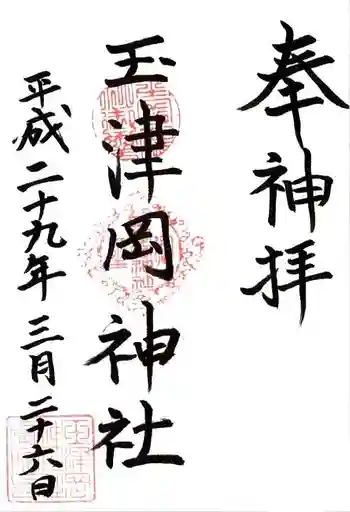 奉神拝
玉津岡神社
平成二十九年三月二十六日